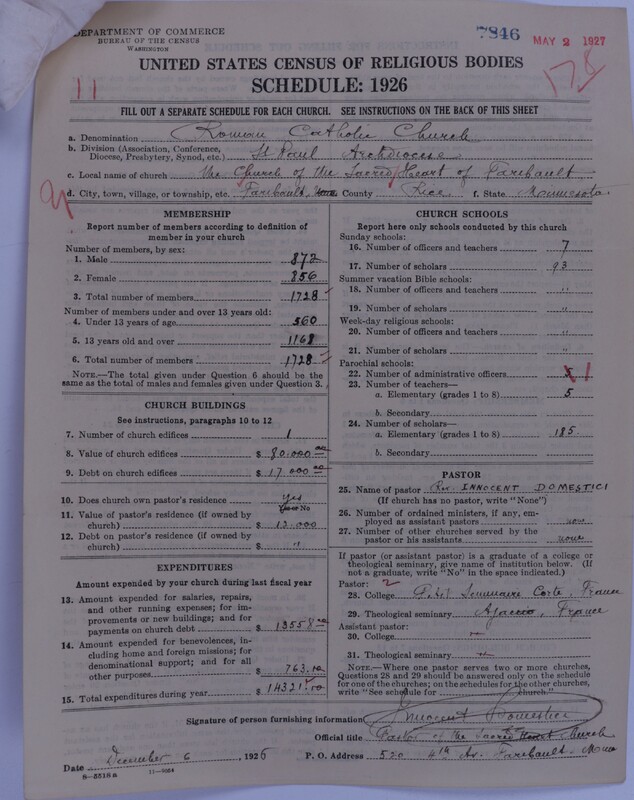 DEPARTMENT OF COMMERCE
BUREAU OF THE CENSUS
WASHINGTON
7846
MAY 2 1927
178
11
UNITED STATES CENSUS OF RELIGIOUS BODIES
SCHEDULE: 1926
FILL OUT A SEPARATE SCHEDULE FOR EACH CHURCH. SEE INSTRUCTIONS ON THE BACK OF THIS SHEET
a. Denomination Roman Catholic Church
b. Division (Association, Conference, Diocese, Presbytery, Synod, etc.) St Paul Archdiocese
c. Local name of church the Church of the Sacred Heart of Faribault
d. City, town, village, or township, etc. Faribault, County Rice f. State Minnesota
MEMBERSHIP
Report number of members according to definition of member in your church
Number of members, by sex:
1. Male 872
2. Female 856
3. Total number of members 1728
Number of members under and over 13 years old:
4. Under 13 years of age 560
5. 13 years old and over 1168
6. Total number of members 1728
NOTE.—The total given under Question 6 should be the same as the total of males and females given under Question 3.
CHURCH BUILDINGS
See instructions, paragraphs 10 to 12
7. Number of church edifices 1
8. Value of church edifices $ 80.000 00
9. Debt on church edifices $ 17.000 00
10. Does church own pastor's residence yes
Yes or No
11. Value of pastor's residence (if owned by church) $ 12.000
12. Debt on pastor's residence (if owned by church) $ "
EXPENDITURES
Amount expended by your church during last fiscal year
13. Amount expended for salaries, repairs, and other running expenses; for improvements or new buildings; and for payments on church debt $ 13558.00
14. Amount expended for benevolences, including home and foreign missions; for denominational support; and for all other purposes $ 763.00
15. Total expenditures during year $ 14321.00
CHURCH SCHOOLS
Report here only schools conducted by this church
Sunday schools:
16. Number of officers and teachers 7
17. Number of scholars 93
Summer vacation Bible schools:
18. Number of officers and teachers "
19. Number of scholars "
Week-day religious schools:
20. Number of officers and teachers "
21. Number of scholars "
Parochial schools:
22. Number of administrative officers 1
23. Number of teachers—
a. Elementary (grades 1 to 8) 5
b. Secondary
24. Number of scholars—
a. Elementary (grades 1 to 8) 185
b. Secondary
PASTOR
25. Name of pastor Rev. INNOCENT DOMESTICI
(If church has no pastor, write "None")
26. Number of ordained ministers, if any, employed as assistant pastors none
27. Number of other churches served by the pastor or his assistants none
If pastor (or assistant pastor) is a graduate of a college or theological seminary, give name of institution below. (If not a graduate, write "No" in the space indicated.)
Pastor: 2
28. College Petit Seminaire Corte, France
29. Theological seminary Ajaccio, France
Assistant pastor:
30. College "
31. Theological seminary "
NOTE.—Where one pastor serves two or more churches, Questions 28 and 29 should be answered only on the schedule for one of the churches; on the schedules for the other churches, write "See schedule for church."
Signature of person furnishing information Innocent Domestici
Official title Pastor of the Sacred Heart Church
Date December 6, 1926 P. O. Address 520 4th Av. Faribault. Minn
8—5518a 11—9024